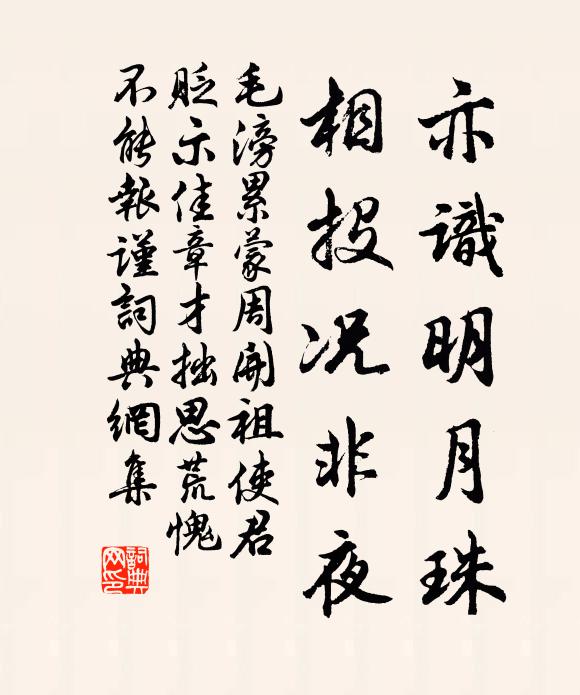 亦識明月珠
相投況非夜
毛滂累蒙周開祖使君
貶示佳章才拙思荒愧
不能報謹詞典網集
詞典
网印